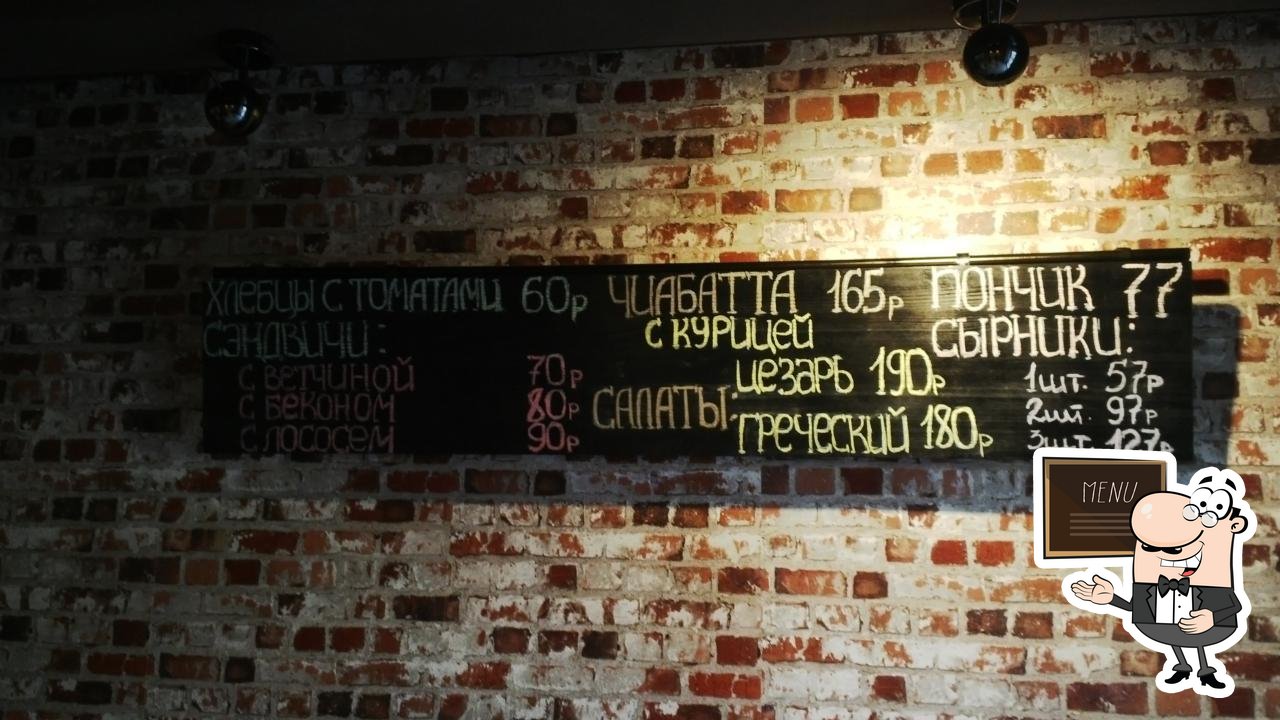 ХЛЕБЦЫ С ТОМАТАМИ 60р
СЭНДВИЧИ:
С ВЕТЧИНОЙ 70р
С БЕКОНОМ 80р
С ЛОСОСЕМ 90р
ЧИАБАТТА 165р
С КУРИЦЕЙ
САЛАТЫ:
ЦЕЗАРЬ 190р
ГРЕЧЕСКИЙ 180р
ПОНЧИК 77
СЫРНИКИ:
1шт. 57р
2шт. 97р
3шт. 127р
MENU